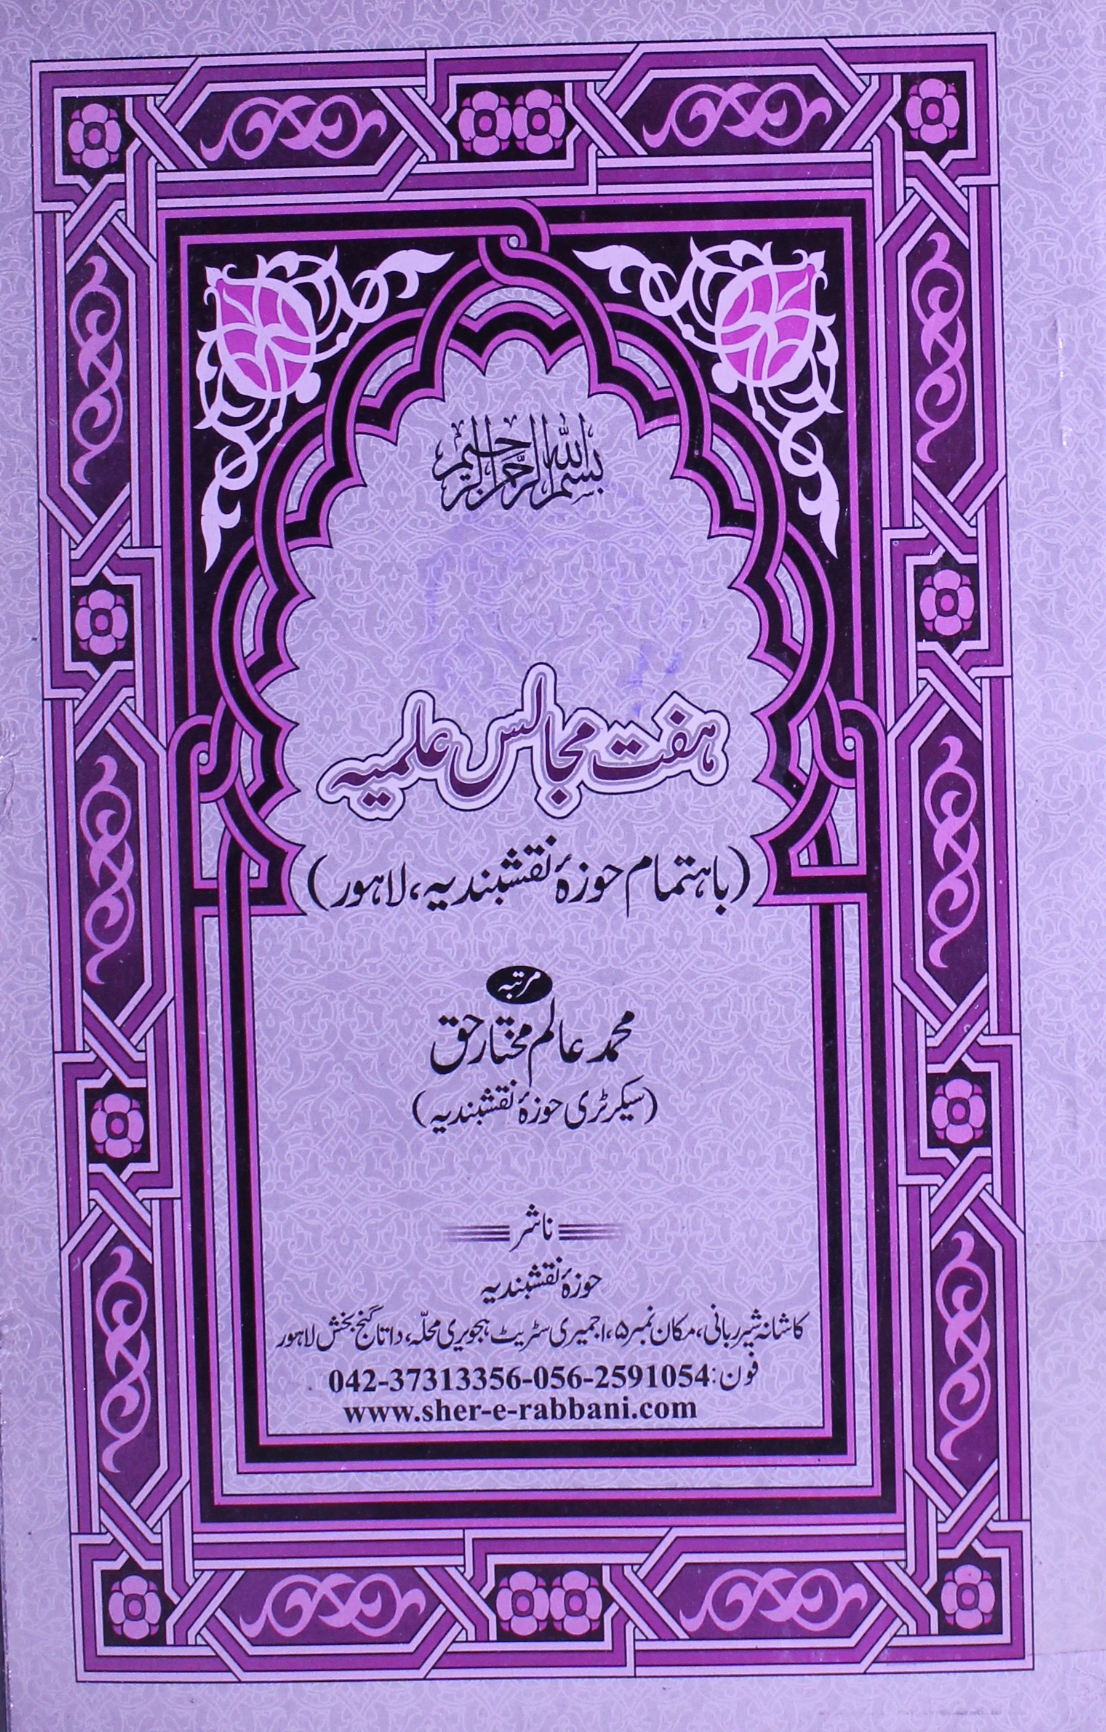 بسم اللہ الرحمن الرحیم
ہفت مجالس علمیہ
(باہتمام حوزۂ نقشبندیہ، لاہور)
مرتبہ
محمد عالم مختار حق
(سیکرٹری حوزۂ نقشبندیہ)
ناشر
حوزۂ نقشبندیہ
کاشانہ شیر ربانی، مکان نمبر ۵، اجمیری سٹریٹ ہجویری محلّہ، داتا گنج بخش لاہور
فون: 042-37313356-056-2591054
www.sher-e-rabbani.com